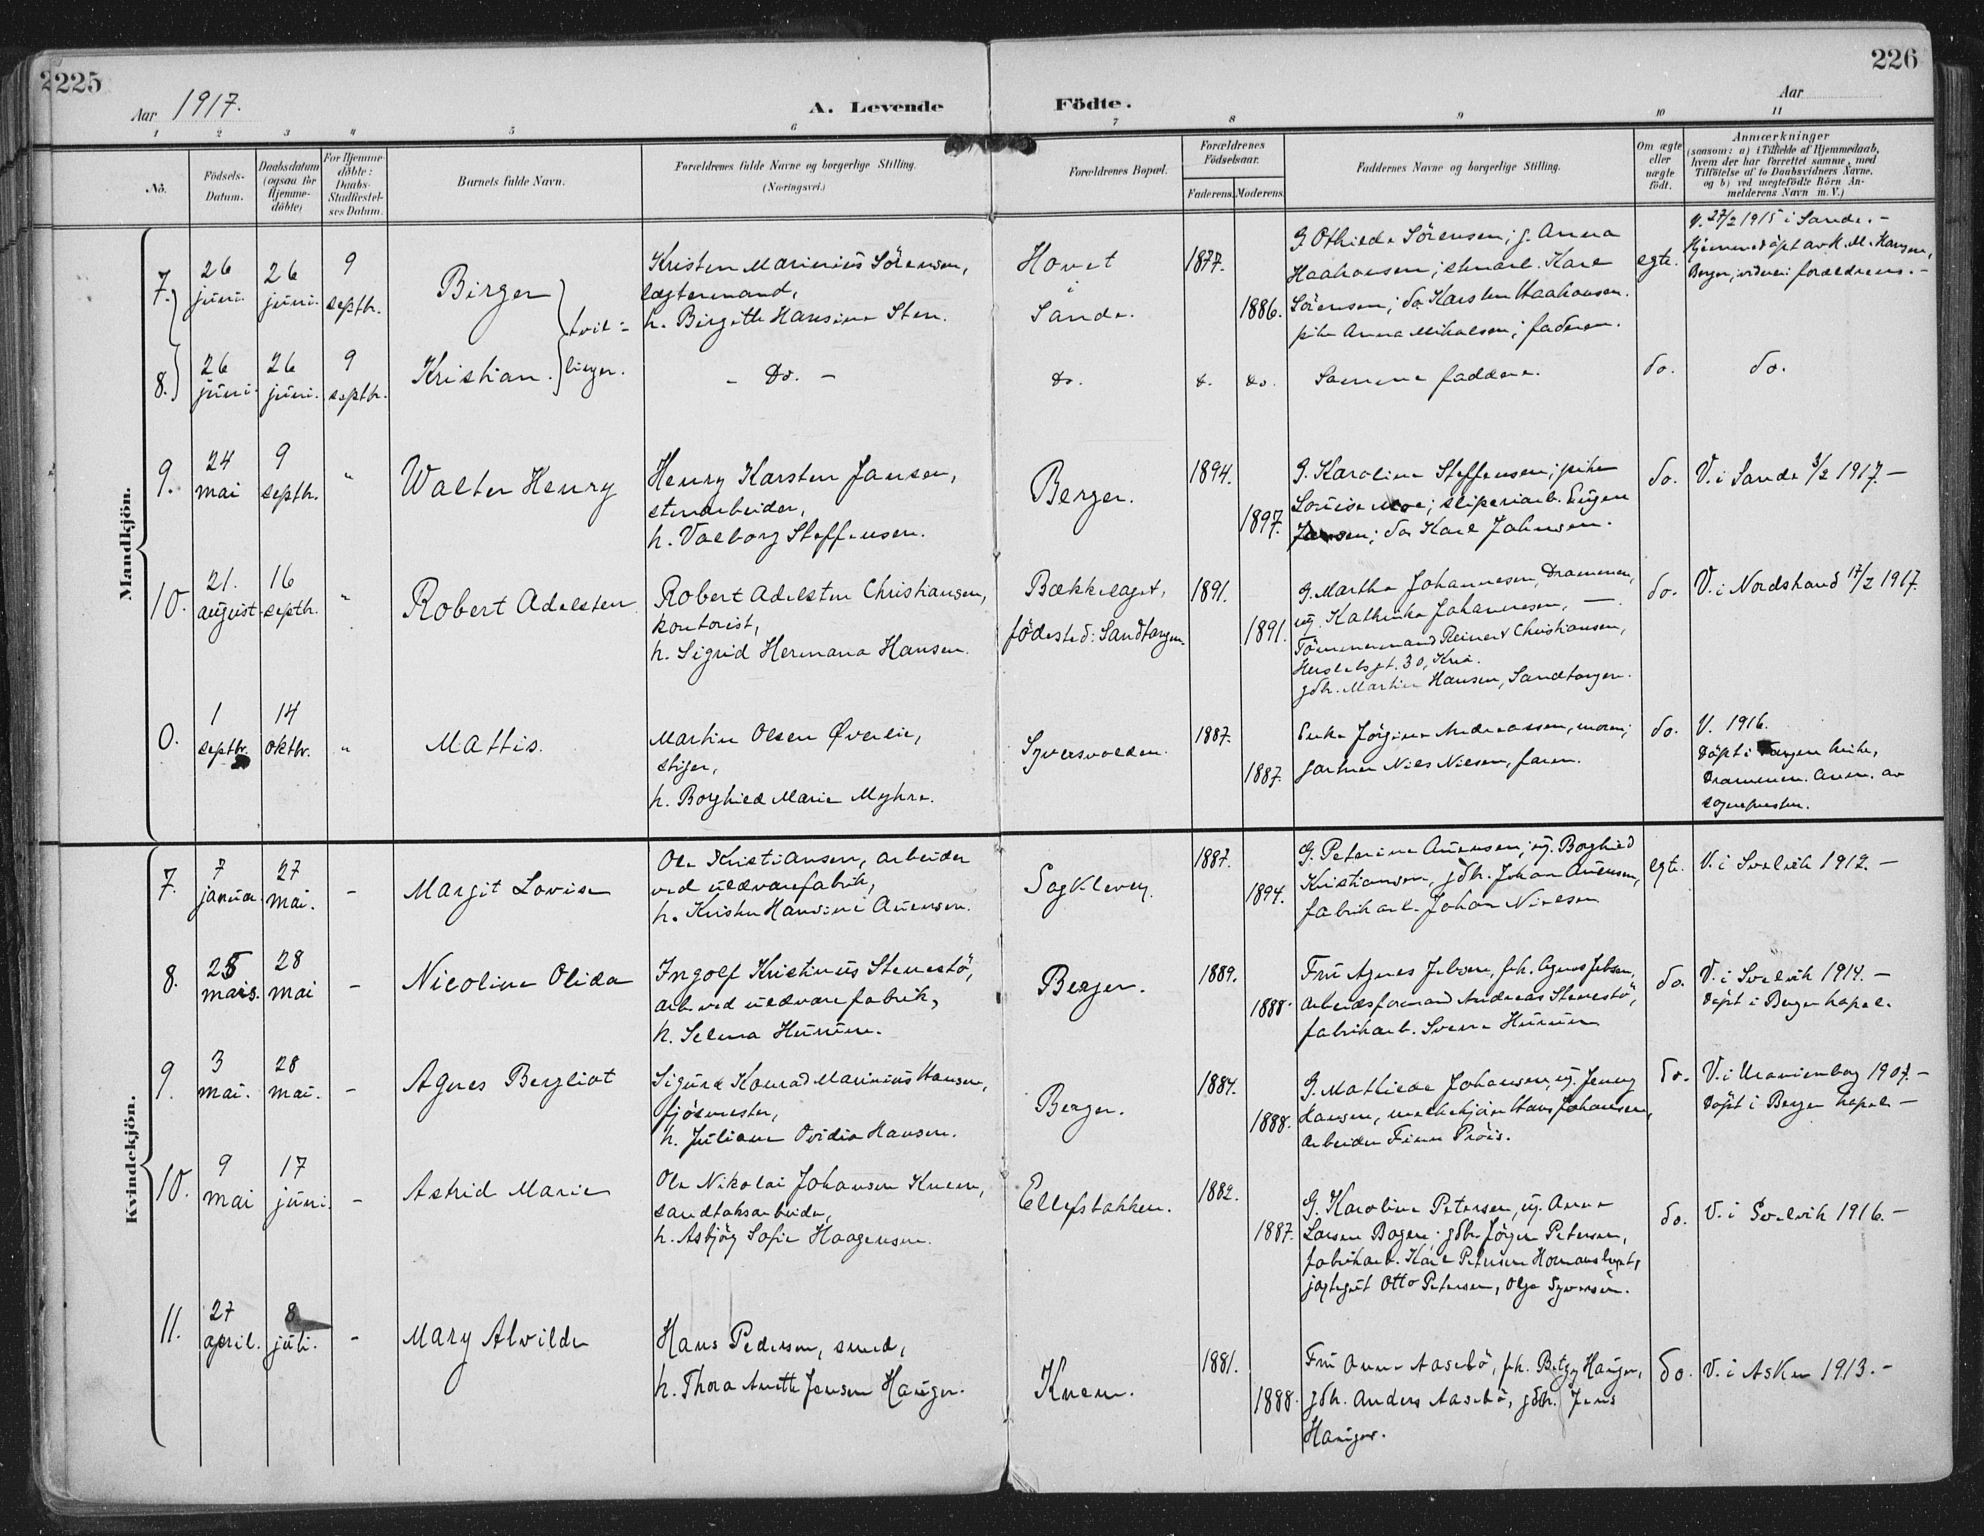 225
226
Aar 1917.
A. Levende Födte.
Aar
1 2 3 4 5 6 7 8 9 10 11
No.
Födsels-Datum.
Daabsdatum (ogsaa for Hjemme-döbte)
For Hjemme-döbte: Daabs-Stadfæstel-ses Datum.
Barnets fulde Navn.
Forældrenes fulde Navne og borgerlige Stilling.
(Næringsvei.)
Forældrenes Bopæl.
Forældrenes Födselsaar.
Faderens. Moderens.
Faddernes Navne og borgerlige Stilling.
Om ægte eller uægte födt.
Anmærkninger
(saasom: a) i Tilfælde af Hjemmedaab,
hvem der har forrettet samme, med
Tilföielse af to Daabsvidners Navne,
og b) ved uægtefödte Börn An-
melderens Navn m. V.)
Mandkjön.
7. 26 juni. 26 juni. 9 septbr. Birger
Kristen Marinius Sörensen,
lægtermand,
h. Birgitte Hansine Sten.
Hovet
i
Sande.
1877. 1886.
G. Othilde Sörensen; g. Anna
Haakonsen; Karl
Sörensen; do Karsten Haakonsen.
pike Anna Mikalsen; faderen.
egte.
V. 27/2 1915 i Sande. -
Hjemmedöpt av K. M. Hansen,
Berger, forældrene. -
tvil-
linger.
8. 26 juni. 26 juni. 9 septbr. Kristian.
- Do. - do. do. do. Samme faddere. do. do.
9. 24 mai 9 septbr. " Walter Henry
Henry Karsten Jansen,
stenarbeider,
h. Valborg Steffensen.
Berger.
1894. 1897.
G. Karoline Steffensen; pike
Louise Moe; sliperiarb. Eugen
Jansen; do Karl Johnsen.
do. V. i Sande 3/2 1917. -
10. 21. august 16 septbr. " Robert Adelsten
Robert Adelsten Christiansen,
kontorist,
h. Sigrid Hermana Hansen.
Bækkelaget,
födested: Sandtangen.
1891. 1891.
G. Martha Johannesen, Drammen,
ug. Kathinka Johannesen, —.
Tömmermand Reinert Christiansen,
Herslebsgt. 30, Kria.
gdbr. Martin Hansen, Sandtangen.
do. V. i Nordstrand 17/2 1917.
0. 1 septbr. 14 oktbr. " Mattis.
Martin Olsen Øverlie,
stiger,
h. Borghild Marie Myhre.
Syversvolden.
1887. 1887.
Enke Jörgine Andreassen, moren;
gartner Nils Nilsen, faren.
do. V. 1916.
Döpt i Tangen kirke,
Drammen. Anm. av
sognepresten.
Kvindekjön.
7. 7 januar 27 mai. - Margit Lovise
Ole Kristiansen, arbeider
ved uldvarefabrik,
h. Kristine Hansine Auensen.
Sagkleven.
1887. 1894.
G. Peterine Auensen; ug. Borghild
Kristiansen, gdbr. Johan Auensen,
fabrikarb. Johan Nielsen
egte. V. i Svelvik 1912. -
8. 25 mars. 28 mai - Nicoline Olida
Ingolf Kristinius Stenestö,
arb. ved uldvarefabrik,
h. Selma Hunum.
Berger.
1889. 1888.
Fru Agnes Jebsen, frk. Agnes Jebsen,
arbeidsformand Andreas Stenestö,
fabrikarb. Sverre Hunum
do. V. i Svelvik 1914. -
Döpt i Berger kapel.
9. 3 mai. 28 mai. - Agnes Bergliot
Sigurd Konrad Marinius Hansen,
fjösmester,
h. Juliane Ovidia Hansen.
Berger.
1884. 1888.
G. Mathilde Johansen, ug. Jenny
Hansen, melkekjörer Hans Johansen,
arbeider Finn Pröis.
do. V. i Uranienborg 1907. -
Döpt i Berger kapel -
10. 9 mai 17 juni. - Astrid Marie
Ole Nikolai Johansen Knem,
sandtaksarbeider,
h. Asbjörg Sofie Haagensen.
Ellefsbakken.
1882. 1887.
G. Karoline Petersen, ug. Anna
Larsen Bogen. gdbr. Jörgen Petersen,
fabrikarb. Karl Petersen
Otto Petersen, Olga Syversen.
do. V. i Svelvik 1916. -
11. 27 april. 8 juli. - Mary Alvilde
Hans Pedersen, smed,
h. Thora Anette Jensen Hauger.
Knem.
1881. 1888.
Fru Anna Aasebö, frk. Betzy Hauger,
gdbr. Anders Aasebö, gdbr. Jens
Hauger.
do. V. i Asker 1913. -